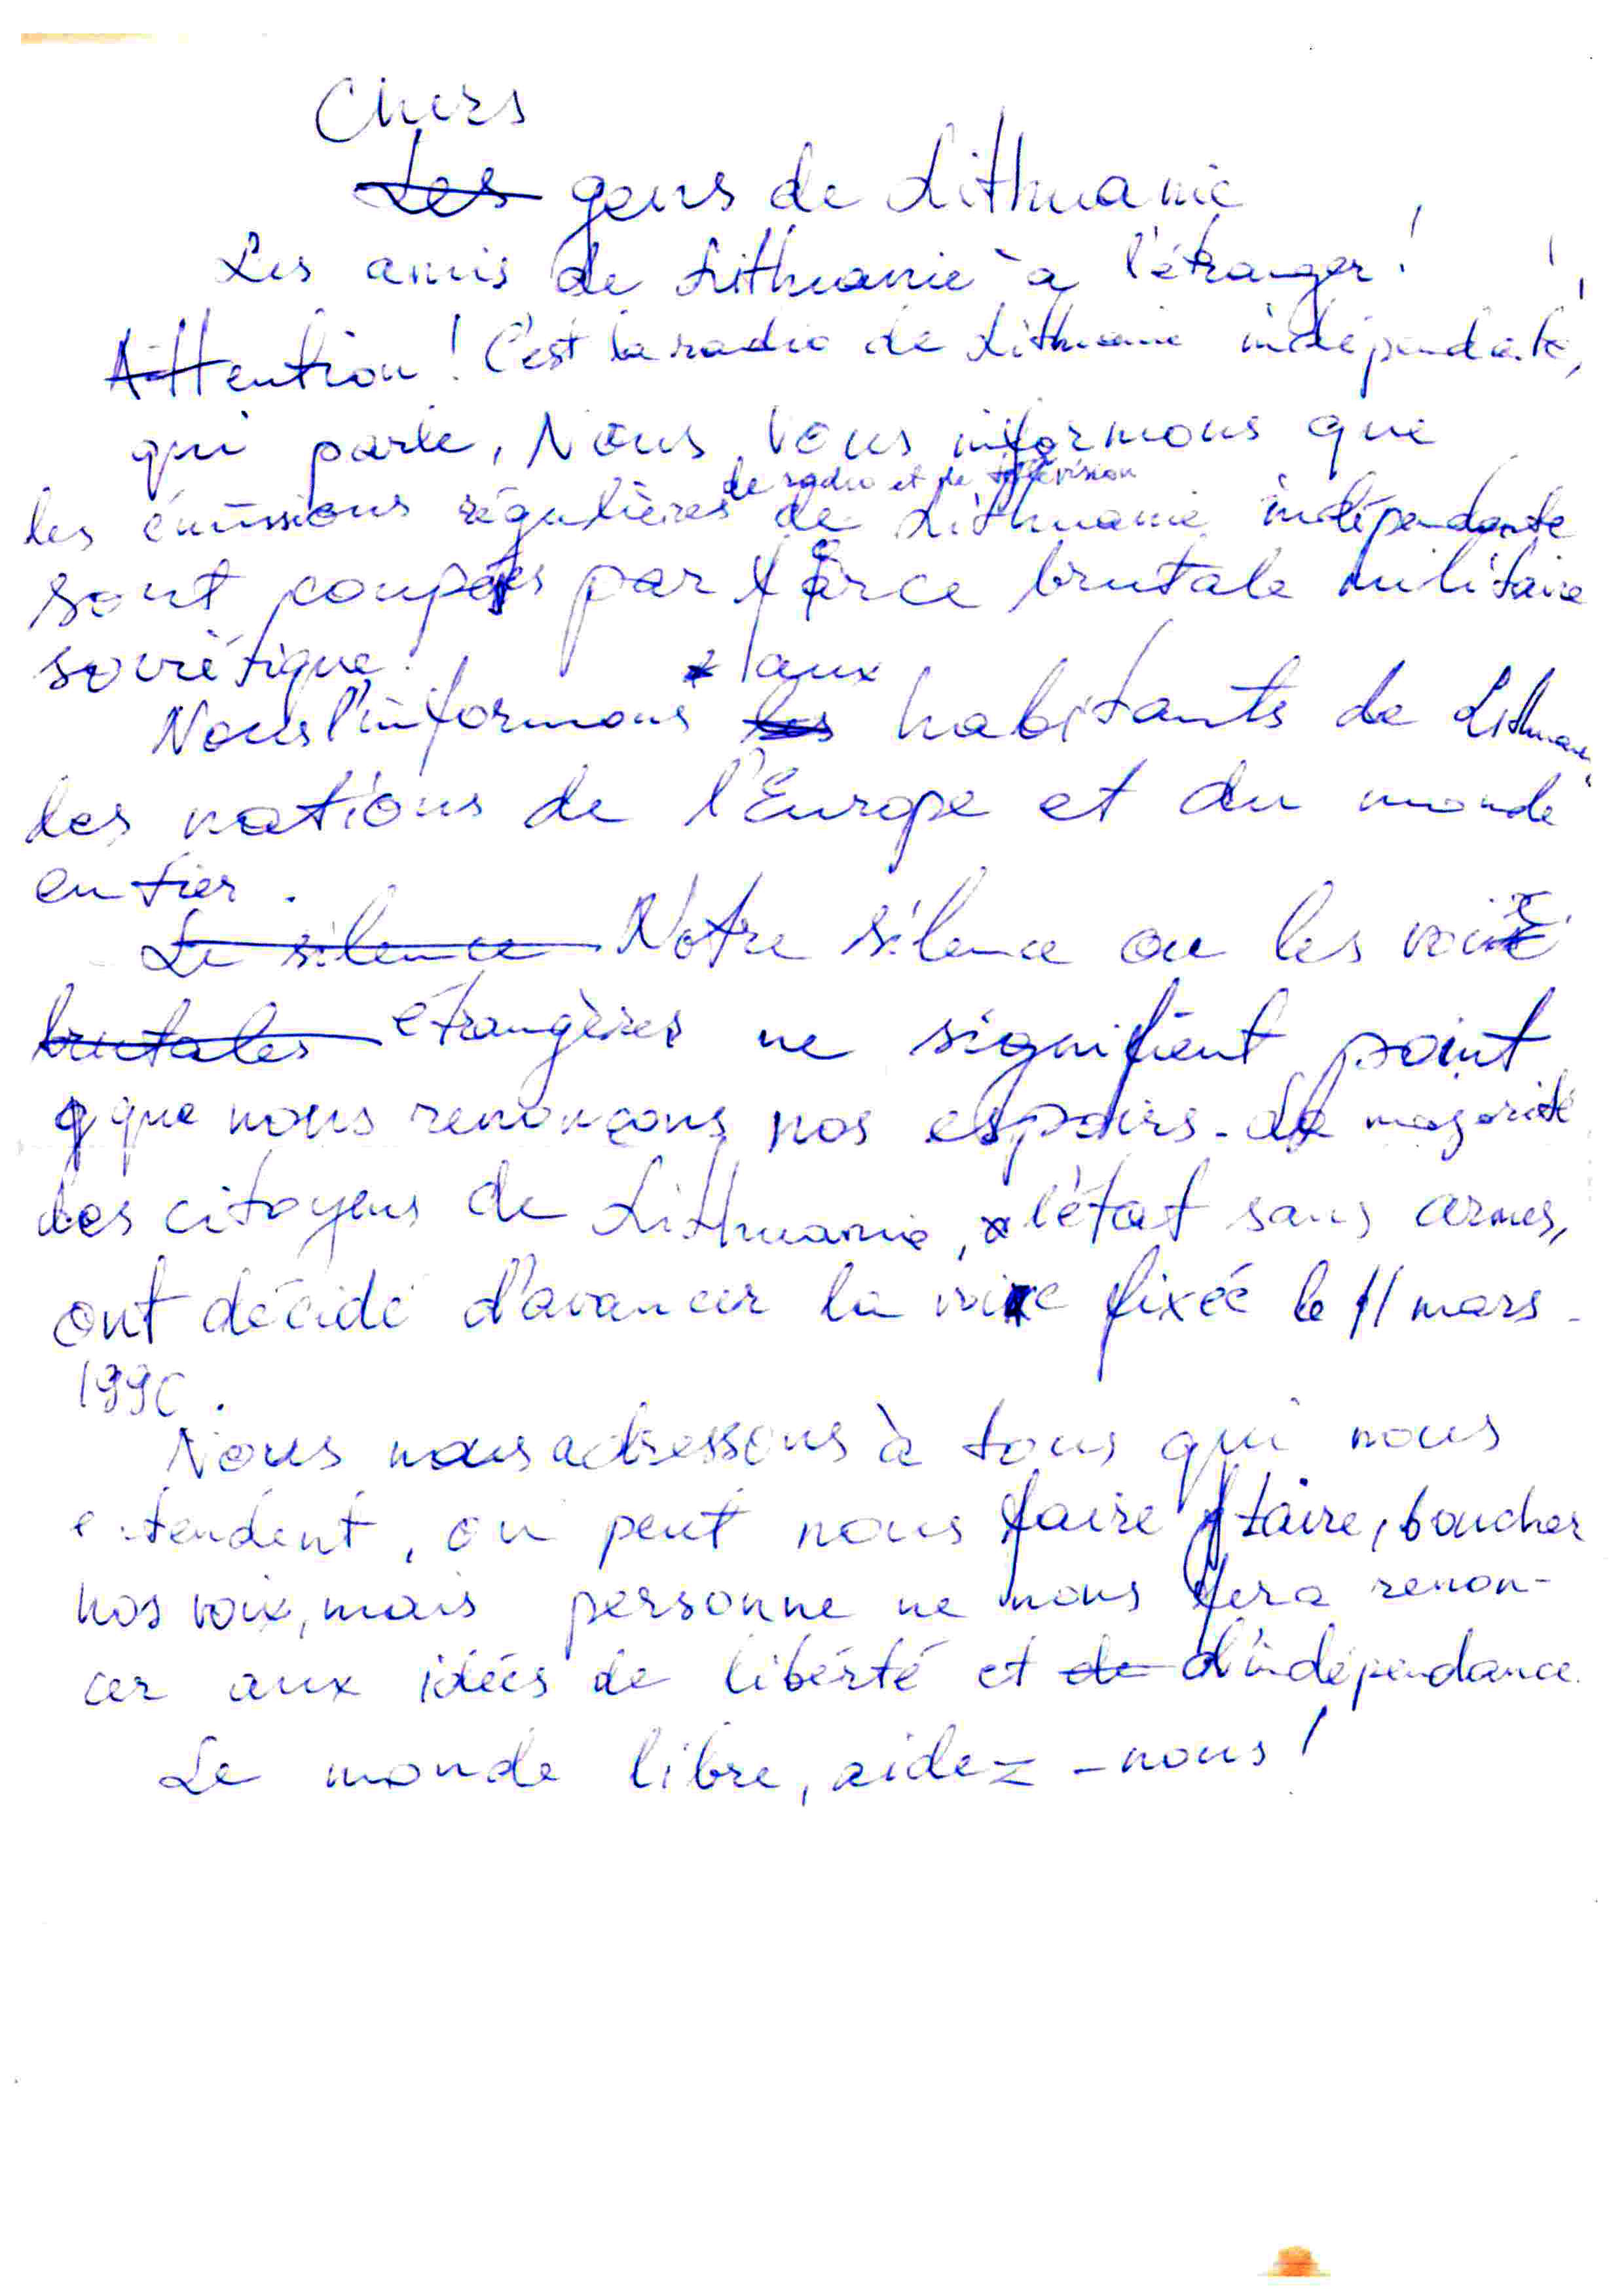 Chers
Les gens de Lithuanie
Les amis de Lithuanie à l'étranger!
Attention! C'est la radio de Lithuanie indépendate,
qui parle, Nous Vous informons que
de radio et de télévision
les émissions régulières de Lithuanie indépendante
sont coupées par force brutale militaire
soviétique.
aux
Nous l'informons les habitants de Lithuanie,
les nations de l'Europe et du monde
entier.
Le silence Notre silence ou les voix
brutales étrangères ne signifient point
que nous renonçons nos espoirs. La majorité
des citoyens de Lithuanie, l'état sans armes,
ont décidé d'avancer la voie fixée le 11 mars
1990.
Nous nous adressons à tous qui nous
entendent, on peut nous faire taire, boucher
nos voix, mais personne ne nous fera renon-
cer aux idées de libérté et de d'indépendance.
Le monde libre, aidez-nous!